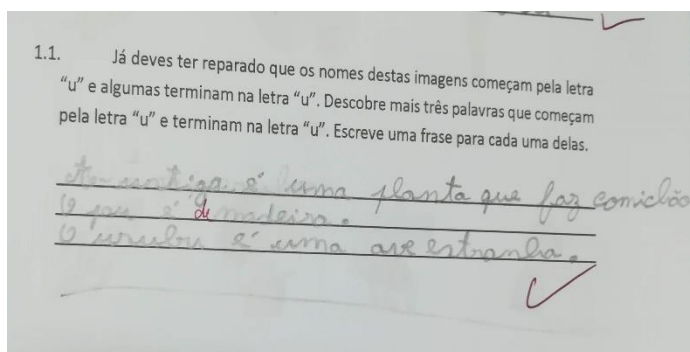 1.1. Já deves ter reparado que os nomes destas imagens começam pela letra
“u” e algumas terminam na letra “u”. Descobre mais três palavras que começam
pela letra “u” e terminam na letra “u”. Escreve uma frase para cada uma delas.
A urtiga é uma planta que faz comichão
O pau é de madeira.
O urubu é uma ave estranha.